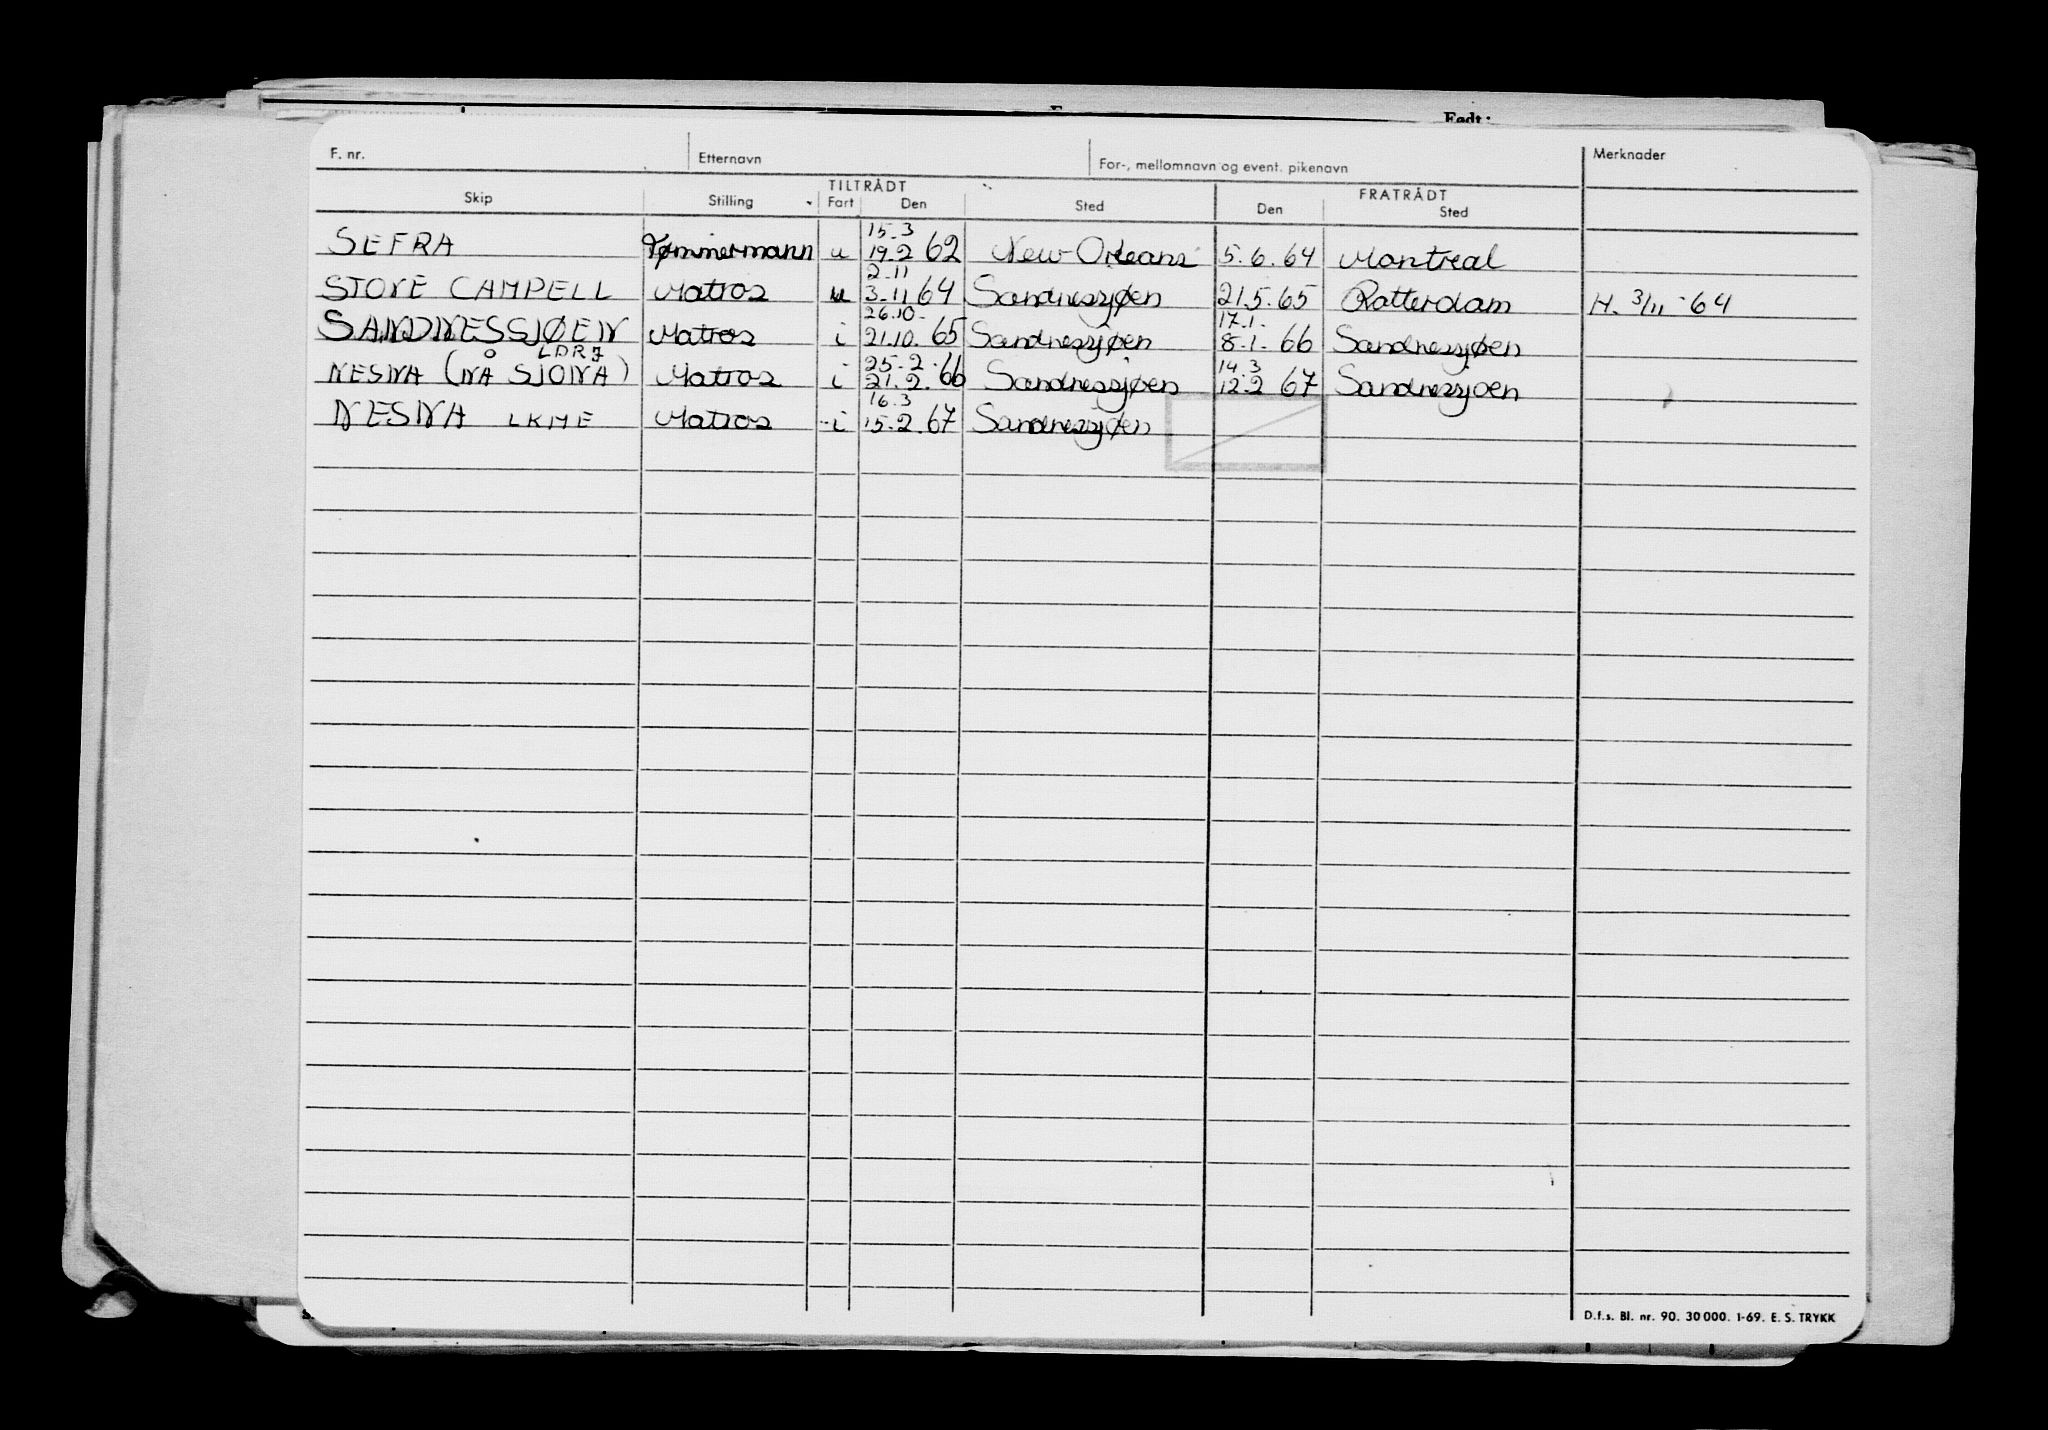 Født:
F. nr. Etternavn For-, mellomnavn og event. pikenavn Merknader
TILTRÅDT FRATRÅDT
Skip Stilling Fart Den Sted Den Sted
15.3
SEFRA Tømmermann u 19.2 62 New Orleans 5.6.64 Montreal
2.11
STOVE CAMPELL Matros u 3.11 64 Sandnessjøen 21.5.65 Rotterdam H. 3/11-64
26.10. 17.1.
SANDNESSJØEN Matros i 21.10. 65 Sandnessjøen 8.1. 66 Sandnessjøen
LDRJ 25.2. 14.3
NESNA (NÅ SJONA) Matros i 21.2. 66 Sandnessjøen 12.2 67 Sandnessjoen
16.3
NESNA LKME Matros i 15.2. 67 Sandnessjøen
D.f.s. Bl. nr. 90. 30 000. 1-69. E. S. TRYKK